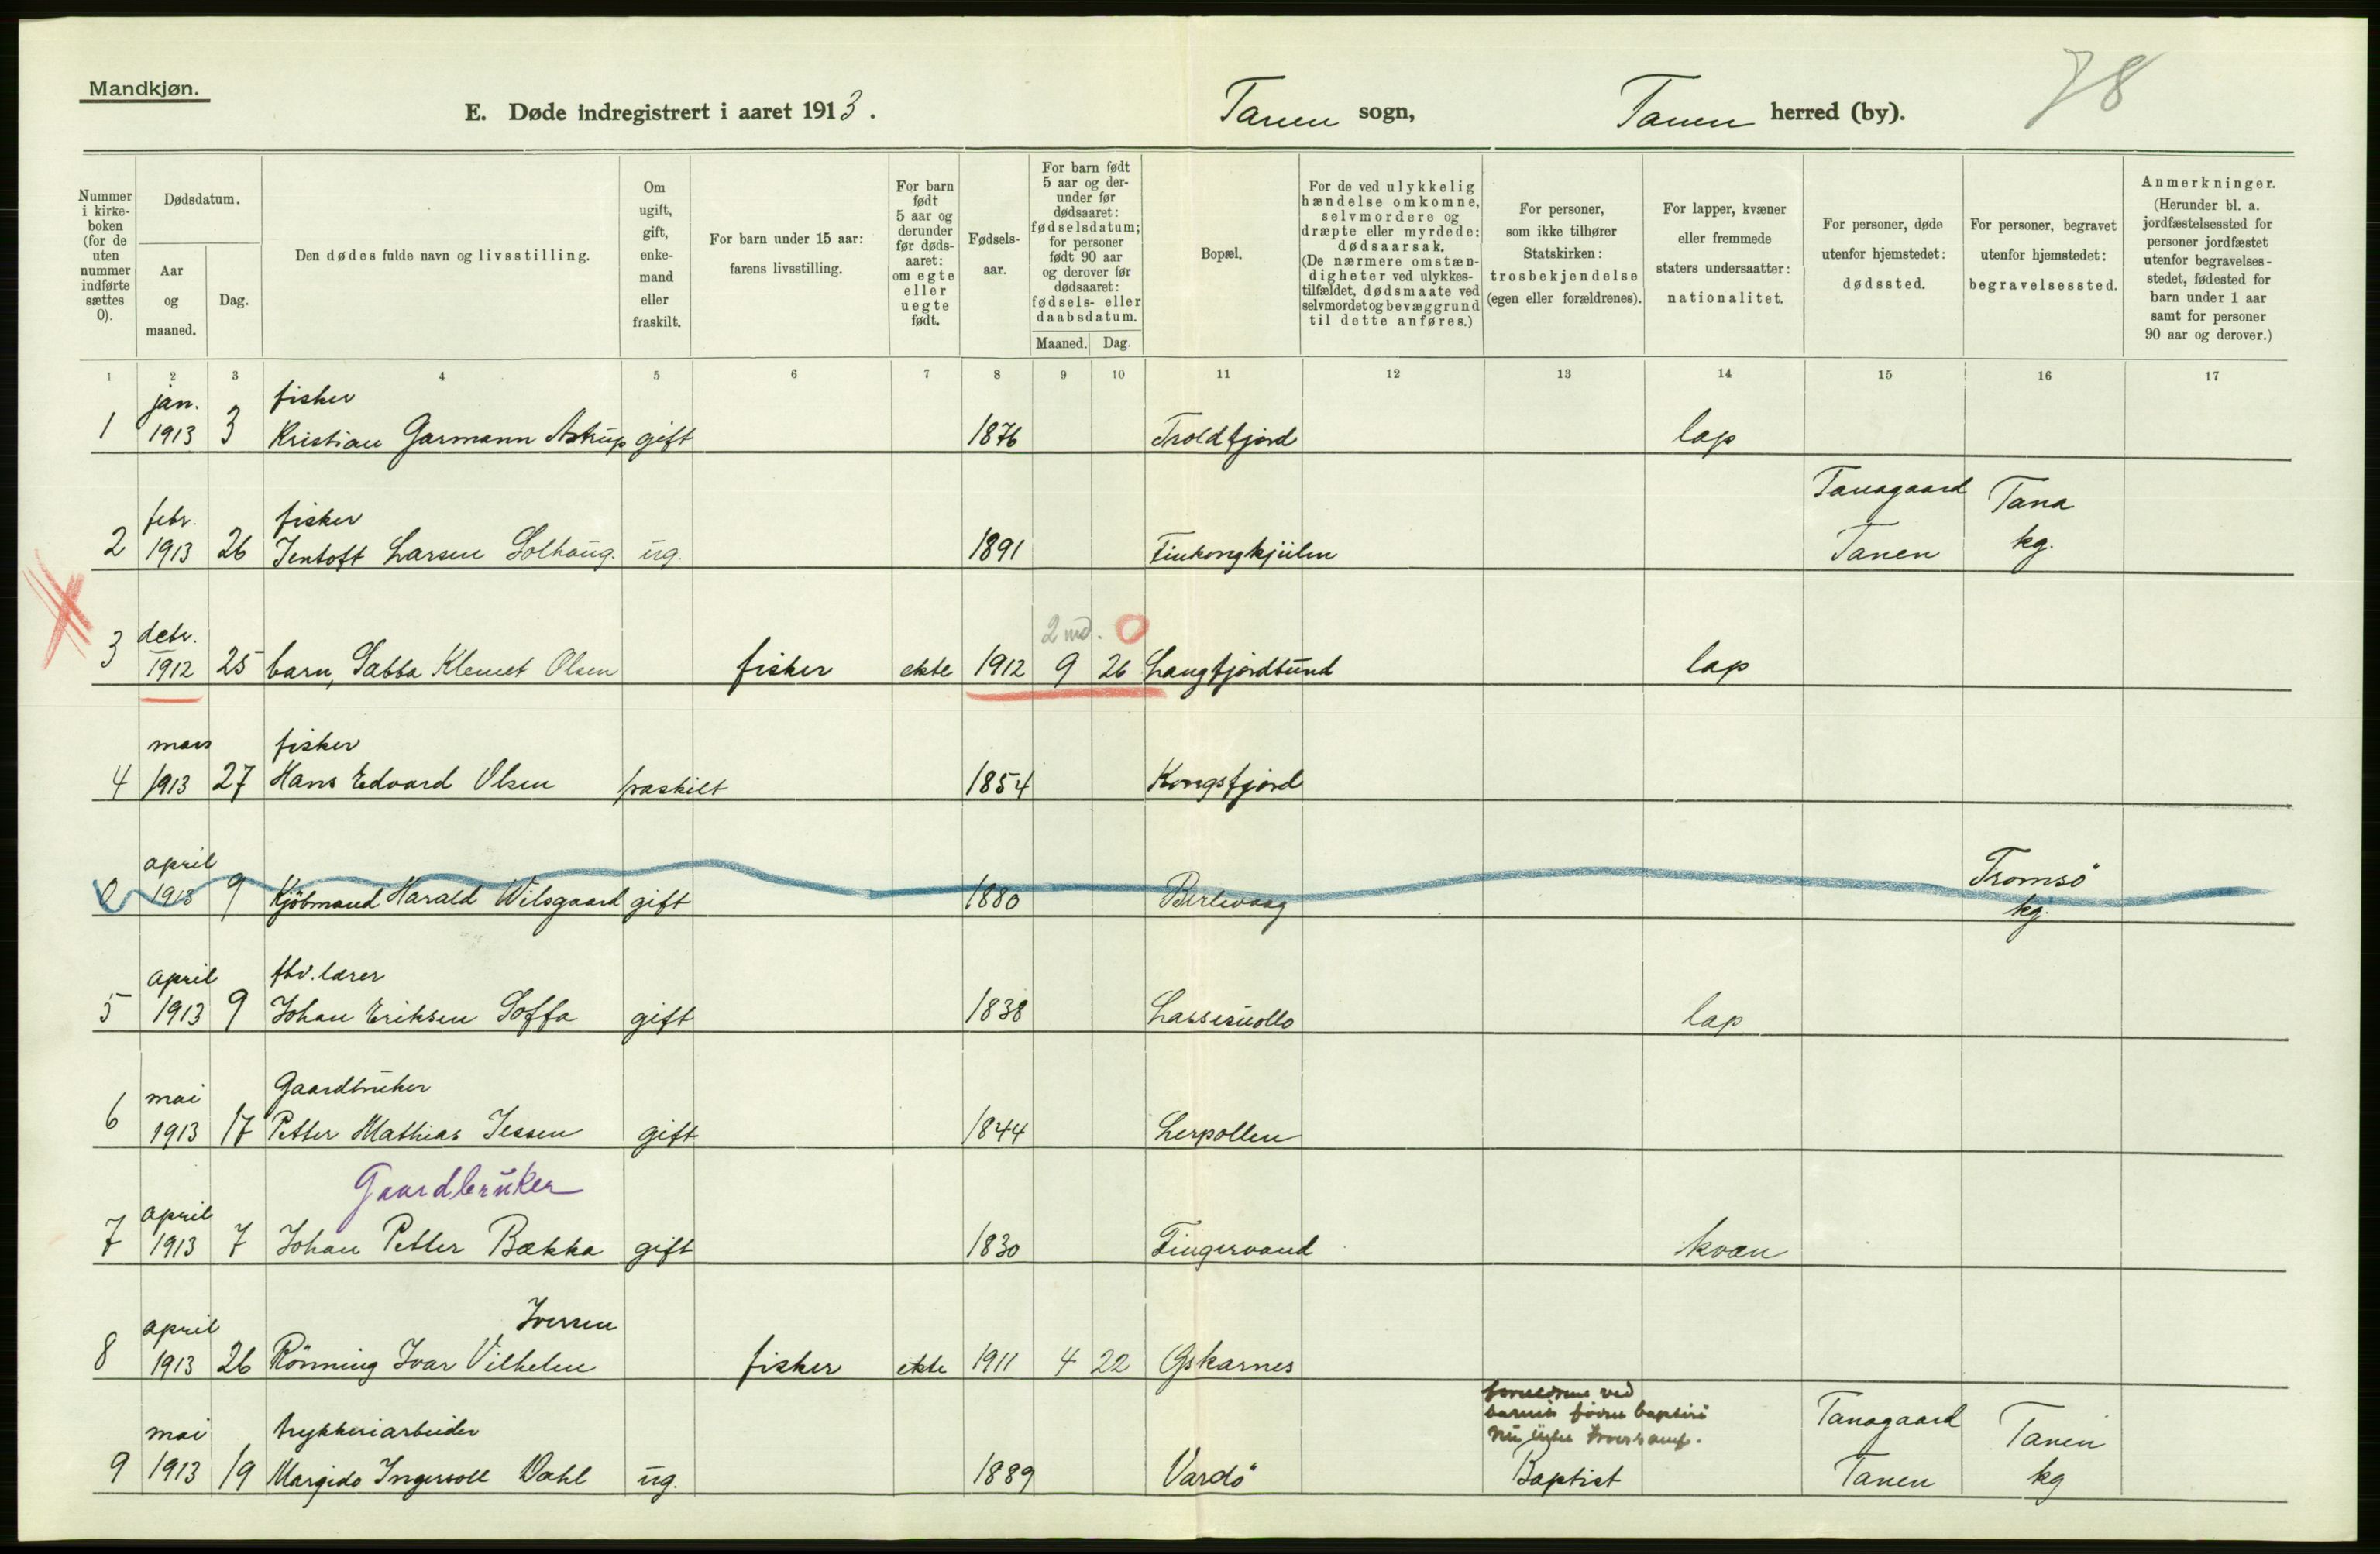 Mandkjøn.
78
E. Døde indregistrert i aaret 1913.
Tanen sogn,
Tanen herred (by).
Nummer i kirke- boken (for de uten nummer indførte sættes 0).
Dødsdatum.
Aar og maaned.
Dag.
Den dødes fulde navn og livsstilling.
Om ugift, gift, enke- mand eller fraskilt.
For barn under 15 aar: farens livsstilling.
For barn født 5 aar og derunder før døds- aaret: om egte eller uegte født.
Fødsels- aar.
For barn født 5 aar og der- under før dødsaaret: fødselsdatum; for personer født 90 aar og derover før dødsaaret: fødsels- eller daabsdatum.
Maaned. Dag.
Bopæl.
For de ved ulykkelig hændelse omkomne, selvmordere og dræpte eller myrdede: dødsaarsak. (De nærmere omstæn- digheter ved ulykkes- tilfældet, dødsmaate ved selvmordet og bevæggrund til dette anføres.)
For personer, som ikke tilhører Statskirken: trosbekjendelse (egen eller forældrenes).
For lapper, kvæner eller fremmede staters undersaatter: nationalitet.
For personer, døde utenfor hjemstedet: dødssted.
For personer, begravet utenfor hjemstedet: begravelsessted.
Anmerkninger. (Herunder bl. a. jordfæstelsessted for personer jordfæstet utenfor begravelses- stedet, fødested for barn under 1 aar samt for personer 90 aar og derover.)
1 2 3 4 5 6 7 8 9 10 11 12 13 14 15 16 17
jan. fisker
1 1913 3 Kristian Garmann Astrup gift 1876 Troldfjord lap
Tanagaard Tana
febr. fisker
2 1913 26 Jentoft Larsen Solhaug. ug. 1891 Finkongkjiilen Tanen kg.
decbr. 2 md. 0
3 1912 25 barn, Sabba Klemet Olsen fisker ekte 1912 9 26 Langfjordbund lap
mars fisker
4 1913 27 Hans Edvard Olsen fraskilt 1854 Kongsfjord
april Tromsö
0 1913 9 Kjöbmand Harald Wilsgaard gift 1880 Berlevaag kg.
april fhv. lærer
5 1913 9 Johan Eriksen Soffa gift 1838 Lassesuollo lap
mai Gaardbruker
6 1913 17 Petter Mathias Jessen gift 1844 Lerpollen
Gaardbruker
april
7 1913 7 Johan Petter Bækka gift 1830 Fingervand kvæn
april Iversen
8 1913 26 Rönning Ivar Vilhelm fisker ekte 1911 4 22 Gskarnes
forældrene ved
barnets födsel baptist
mai trykkeriarbeider nu Tanagaard Tanen
9 1913 19 Margido Ingervoll Dahl ug. 1889 Vardö Baptist Tanen kg